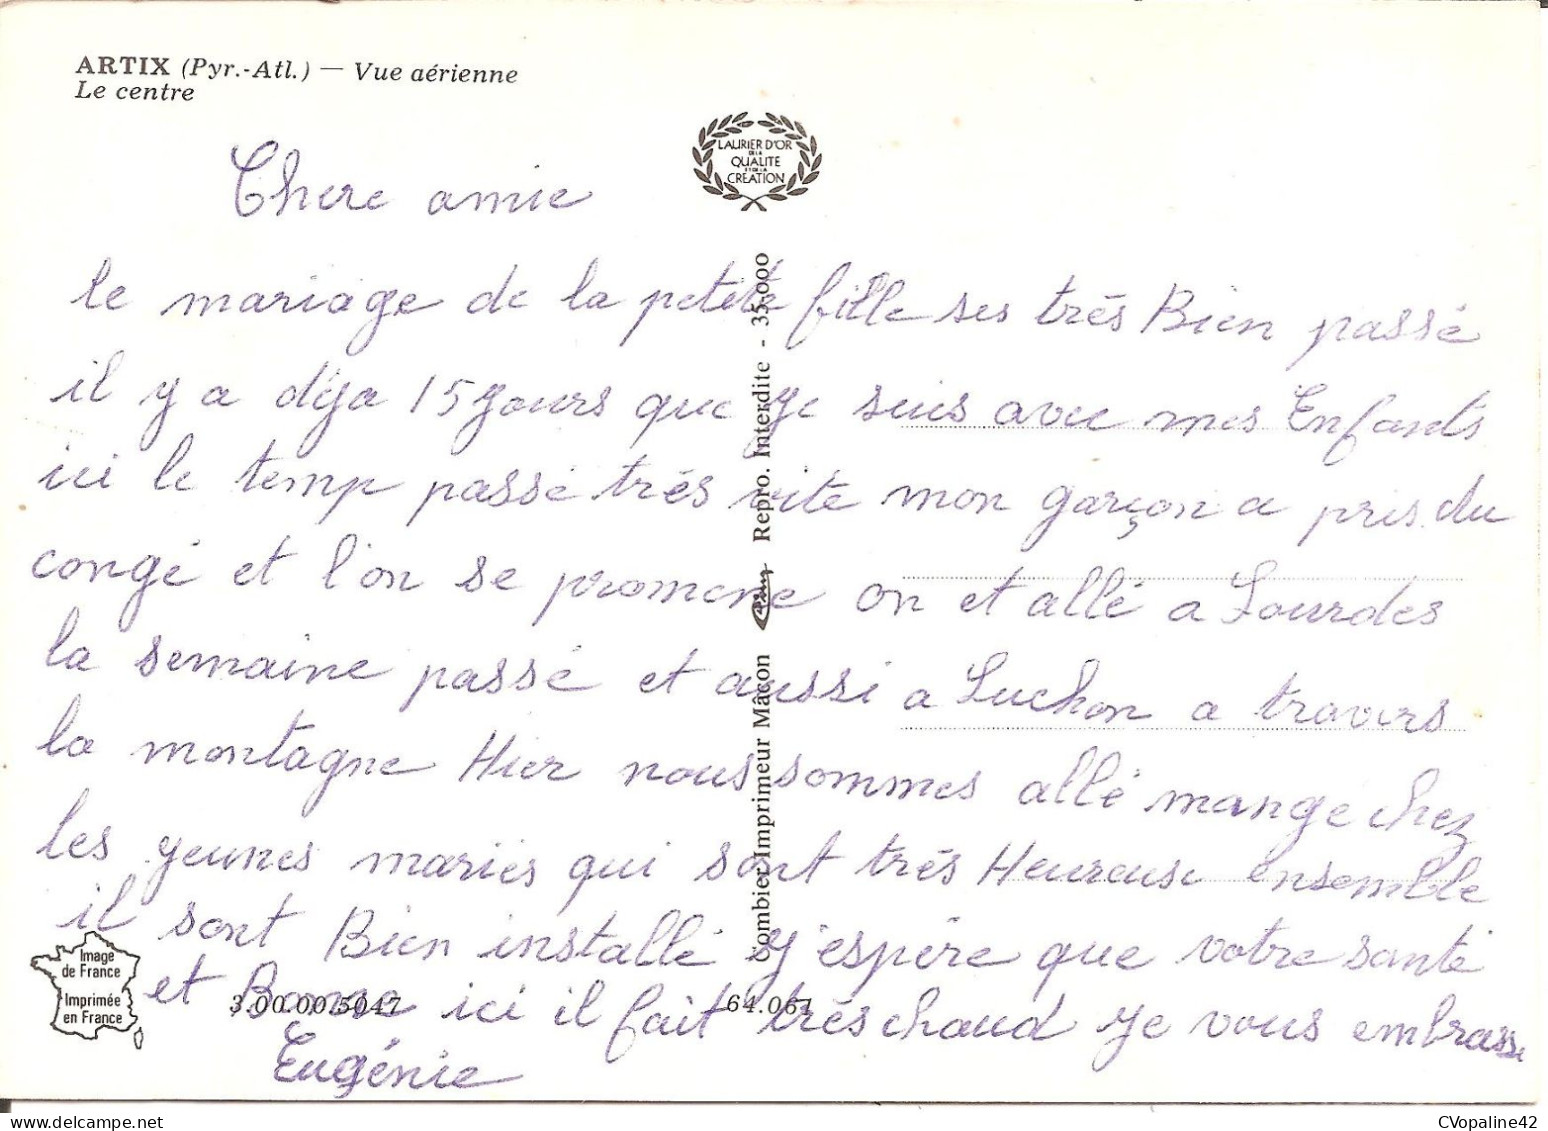 ARTIX (Pyr.-Atl.) — Vue aérienne
Le centre
LAURIER D'OR
DE LA
QUALITE
ET DE LA
CREATION
Chere amie
le mariage de la petite fille ses très Bien passé
il y a déja 15 yours que ye suis avec mes Enfants
ici le temp passé très vite mon garçon a pris du
congé et l'on se promene on et allé a Lourdes
la semaine passé et aussi a Luchon a travers
la montagne Hier nous sommes allé mangé chez
les yeunes mariés qui sont très Heureuse ensemble
il sont Bien installé y'espère que votre santé
et Bonne ici il fait très chaud ye vous embrasse
Eugénie
Combier Imprimeur Mâcon Repro. Interdite - 35.000
Image
de France
Imprimée
en France
3.00.00.5047
64.061
CVopaline42